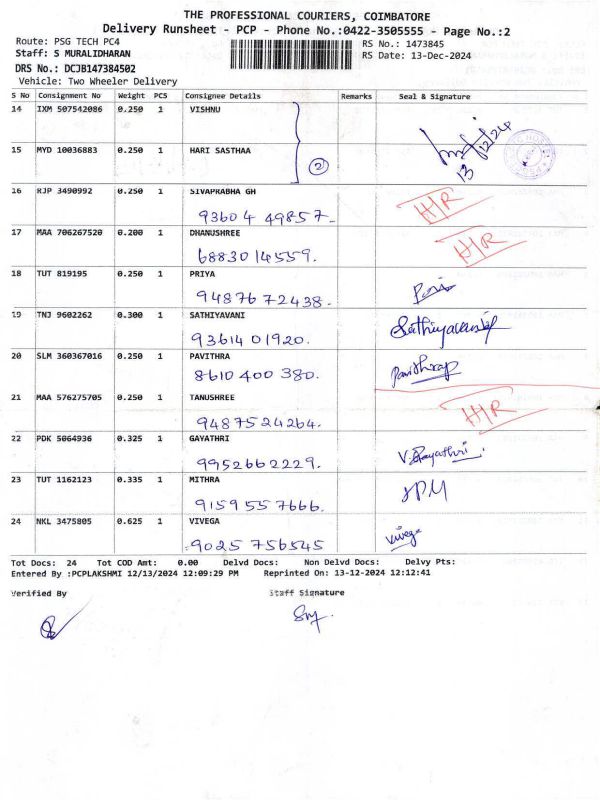 THE PROFESSIONAL COURIERS, COIMBATORE
Delivery Runsheet - PCP - Phone No.:0422-3505555 - Page No.:2
Route: PSG TECH PC4 RS No.: 1473845
Staff: S MURALIDHARAN RS Date: 13-Dec-2024
DRS No.: DCJB147384502
Vehicle: Two Wheeler Delivery
S No Consignment No Weight PCS Consignee Details Remarks Seal & Signature
14 IXM 507542086 0.250 1 VISHNU
13/12/24
15 MYD 10036883 0.250 1 HARI SASTHAA
2
16 RJP 3490992 0.250 1 SIVAPRABHA GH H/R
93604 49857
17 MAA 706267520 0.200 1 DHANUSHREE H/R
6883014559.
18 TUT 819195 0.250 1 PRIYA
94876 72438.
19 TNJ 9602262 0.300 1 SATHIYAVANI Sathiyavani
93614 01920.
20 SLM 360367016 0.250 1 PAVITHRA
8610 400 380.
21 MAA 576275705 0.250 1 TANUSHREE H/R
9487524264.
22 PDK 5064936 0.325 1 GAYATHRI V. Gayathri
9952662229.
23 TUT 1162123 0.335 1 MITHRA
9159557666.
24 NKL 3475805 0.625 1 VIVEGA Vivega
9025 756545
Tot Docs: 24 Tot COD Amt: 0.00 Delvd Docs: Non Delvd Docs: Delvy Pts:
Entered By :PCPLAKSHMI 12/13/2024 12:09:29 PM Reprinted On: 13-12-2024 12:12:41
Verified By Staff Signature